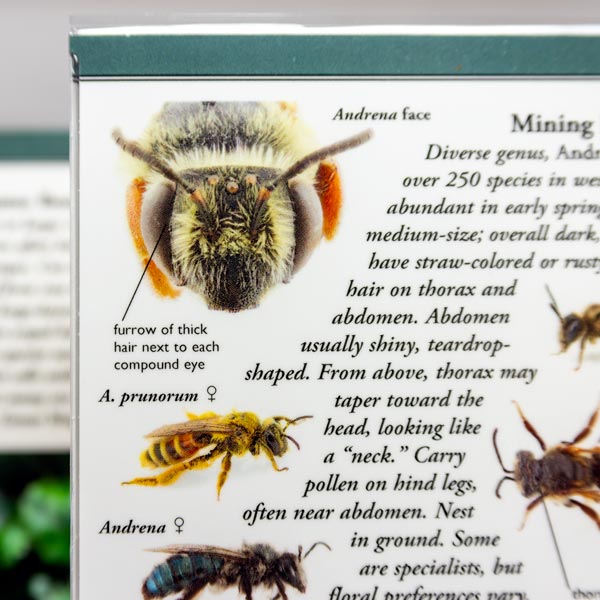 Andrena face
Mining
Diverse genus, Andr
over 250 species in wes
abundant in early spring
medium-size; overall dark,
have straw-colored or rusty
hair on thorax and
abdomen. Abdomen
usually shiny, teardrop-
shaped. From above, thorax may
taper toward the
head, looking like
a “neck.” Carry
pollen on hind legs,
often near abdomen. Nest
in ground. Some
are specialists, but
floral preferences vary.
furrow of thick
hair next to each
compound eye
A. prunorum ♀
Andrena ♀